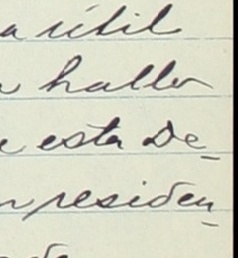 a útil
hallo
e esta De-
n residen-